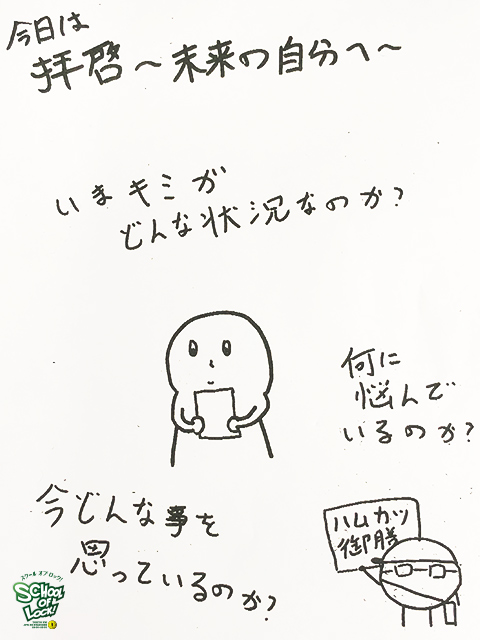 今日は
拝啓〜未来の自分へ〜
いまキミが
どんな状況なのか?
何に
悩んで
いるのか?
今どんな事を
思っているのか?
ハムカツ
御膳
スクール オブ ロック!
SCHOOL
OF
LOCK!